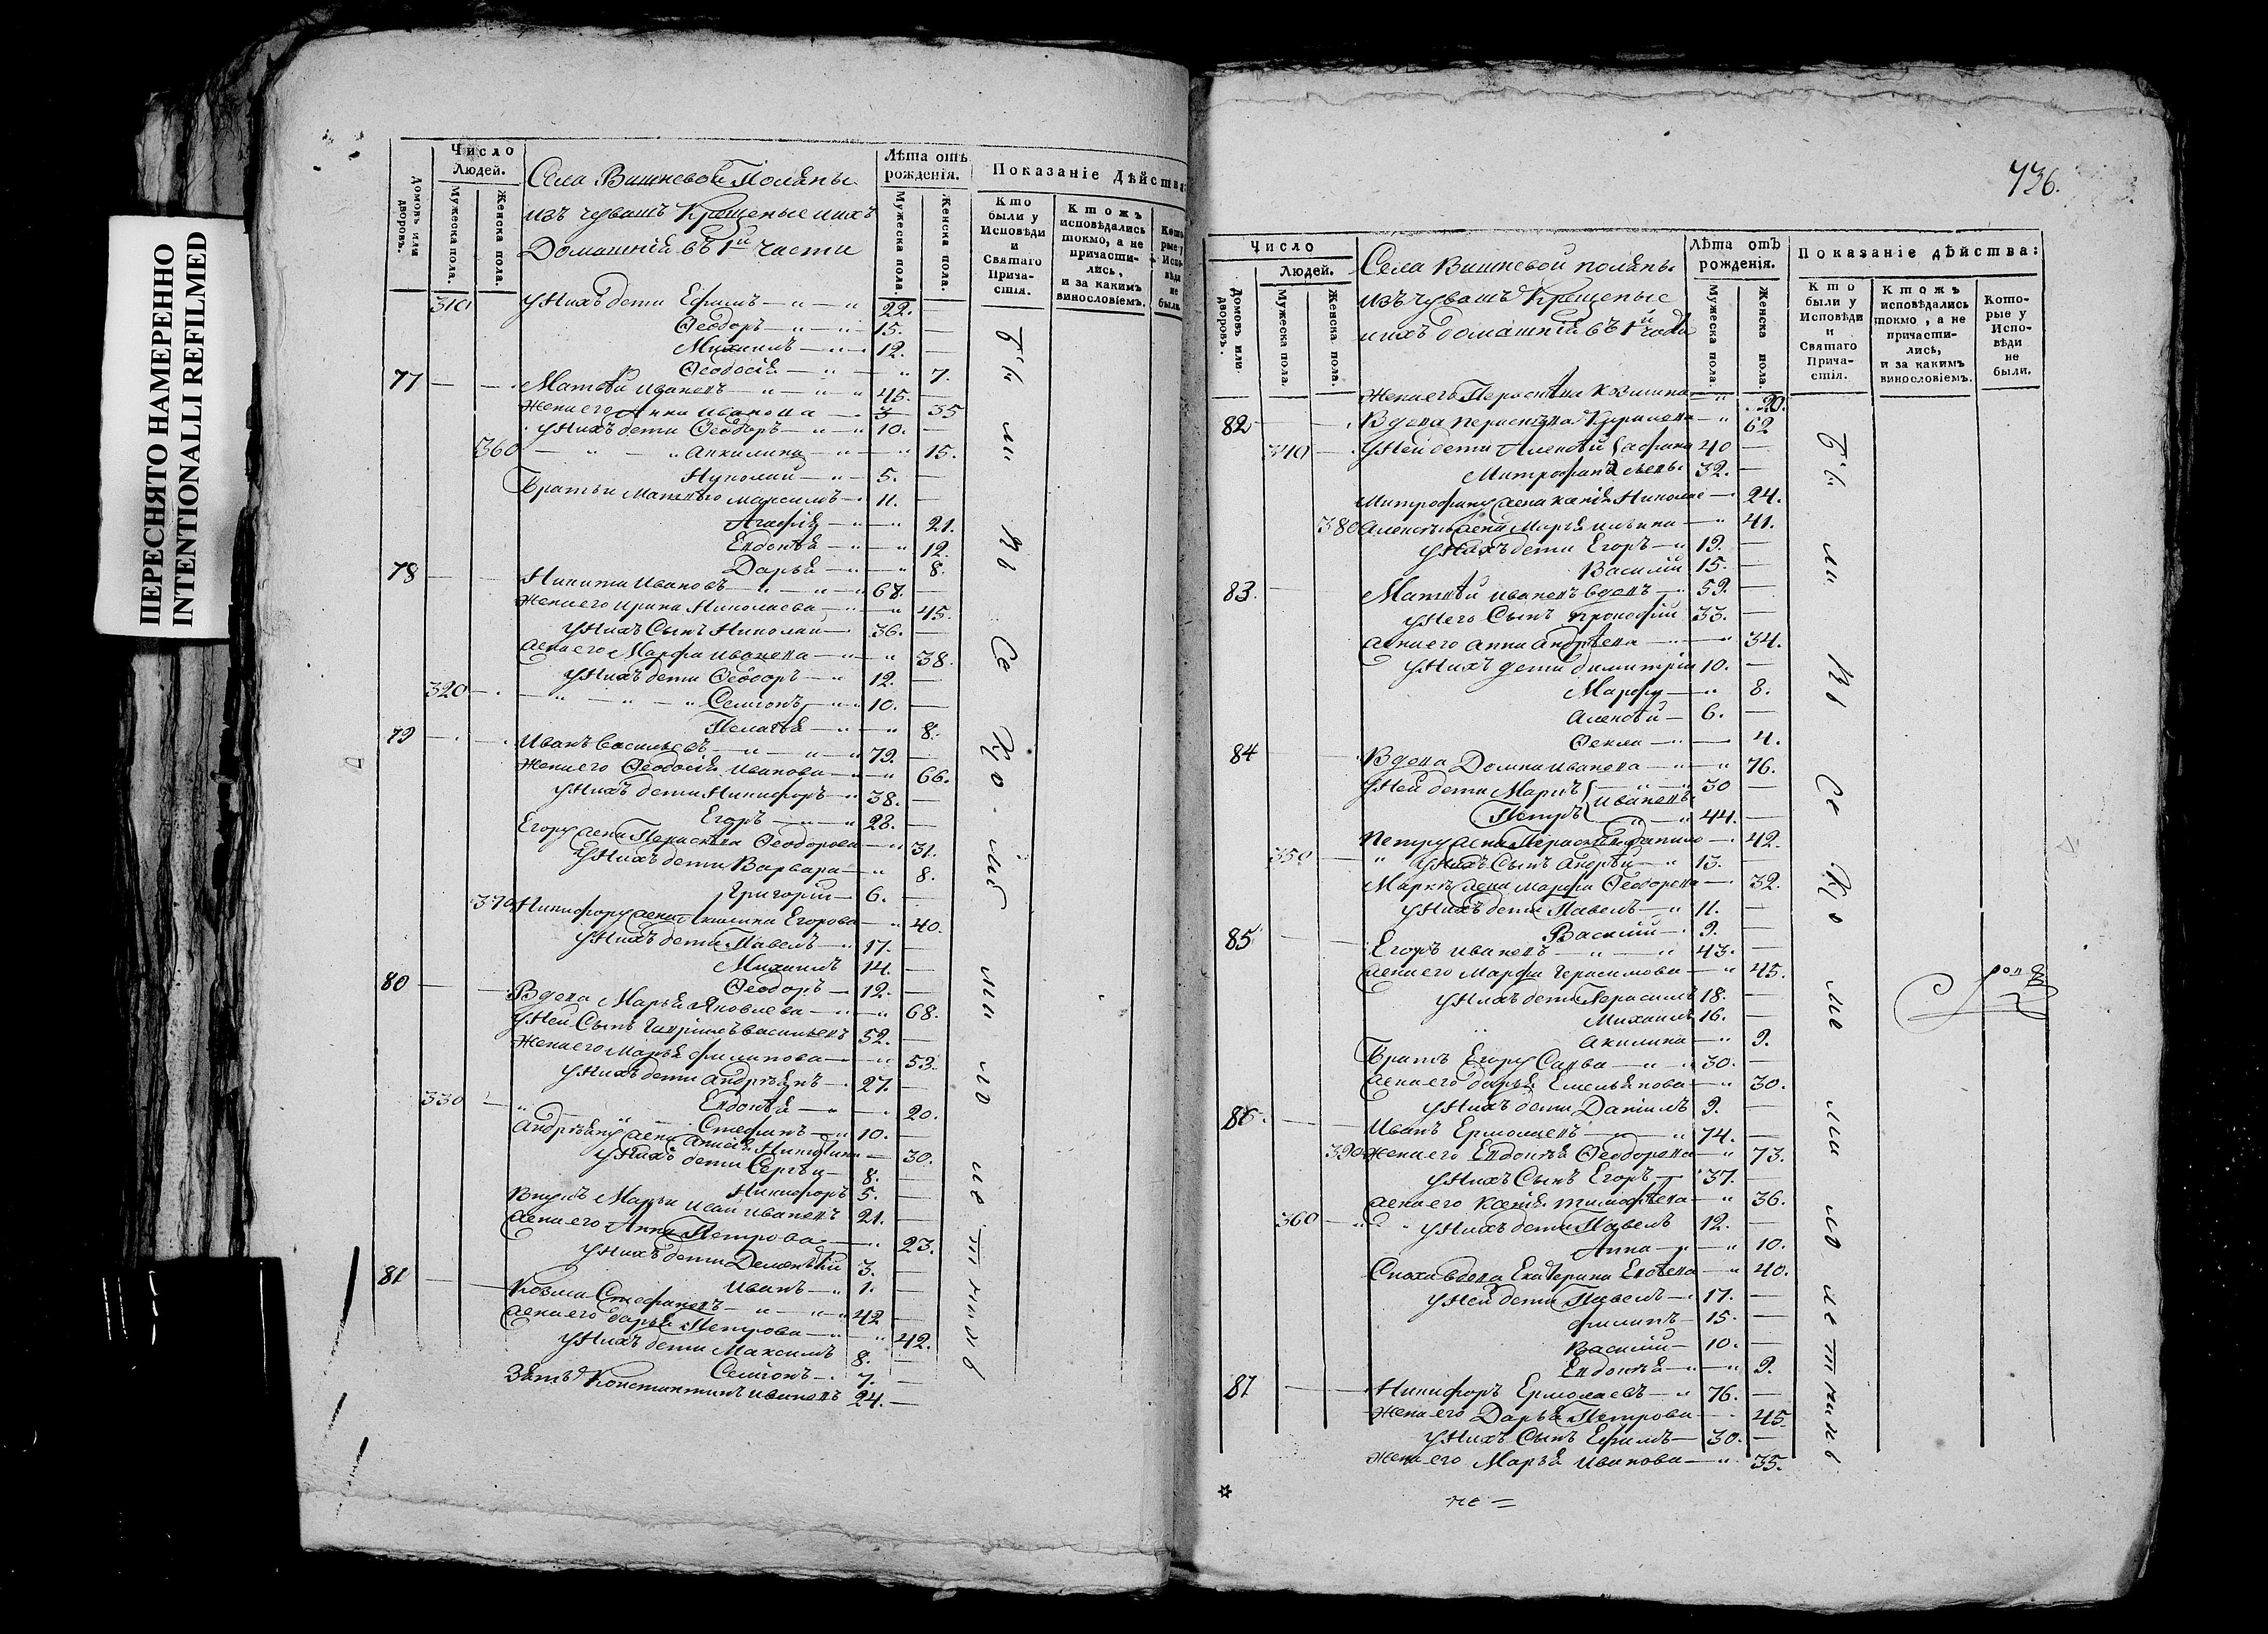 ПЕРЕСНЯТО НАМЕРЕННО
INTENTIONALLI REFILMED
Домовъ или дворовъ.
Число Людей.
Мужеска пола.
Женска пола.
Села Вишневой Поляны
изъ чувашъ Крещеные и ихъ
Домашнїи въ 1й части
Лѣта отъ рожденїя.
Мужеска пола.
Женска пола.
Показанїе Дѣйства:
Кто были у Исповѣди и Святаго Причастїя.
Ктожъ исповѣдались токмо, а не причастились, и за какимъ винословїемъ.
310 У нихъ дети Ефимъ 22.
Ѳеодоръ 15.
Михаилъ 12.
Ѳеодосїя 7.
77 Матвѣй Ивановъ 45.
Жена его Анна Иванова 35
У нихъ дети Ѳеодоръ 10.
360 Акилина 15.
5.
Братья 11.
Агафїя 21.
Евдокѣя 12.
Дарья 8.
78 Никита Ивановъ 67.
Жена его Ирина Николаева 45.
У нихъ Сынъ Николай 36.
Жена его Марфа Иванова 38.
У нихъ дети Ѳеодоръ 12.
320 Семїонъ 10.
Пелагѣя 8.
79 Иванъ Васильевъ 79.
Жена его Ѳеодосїя Иванова 66.
У нихъ дети Никифоръ 38.
Егоръ 28.
Егору жена Параскѣва Ѳеодорова 31.
У нихъ дети Варвара 8.
Григорїи 6.
370 Никифору жена Акилина Егорова 40.
У нихъ дети Павелъ 17.
Михаилъ 14.
Ѳеодоръ 12.
80 Вдова Марья Яковлева 68.
У ней Сынъ Гаврїилъ Васильевъ 52.
Жена его Марья Филипова 53.
У нихъ дети Андрѣянъ 27.
330 Евдокѣя 20.
Стефанъ 10.
Андрѣяну жена Анисїя 30.
У нихъ дети Сергѣи 8.
Никифоръ 5.
Внукъ Марьи Ивановъ 21.
Жена его Анна Петрова 23.
У нихъ дети 3.
Иванъ 1.
81 Козма Стефановъ 42
Жена его Дарья Петрова 42.
У нихъ дети Максимъ 8.
Семїонъ 7.
Зять Константинъ Ивановъ 24.
736.
Число
Домовъ или дворовъ.
Людей.
Мужеска пола.
Женска пола.
Села Вишневой поляны
изъ чувашъ Крещеные
и ихъ домашнїи въ 1й части
Лѣта отъ рожденїя.
Мужеска пола.
Женска пола.
Показанїе дѣйства:
Кто были у Исповѣди и Святаго Причастїя.
Ктожъ исповѣдались токмо, а не причастились, и за какимъ винословїемъ.
Которые у Исповѣди не были.
Жена его Параскѣва Козмина 20.
82 Вдова Параскѣва 62
340 У ней дети Алексѣй 40
Митрофанъ 32.
Митрофану жена 24.
380 Алексѣю жена Марья Ильина 41.
У нихъ дети Егоръ 19.
Василїй 15.
83. Матвѣй Ивановъ вдовъ 59.
У него Сынъ Прокофїй 33.
Жена его Анна Андрѣева 34.
У нихъ дети Димитрїи 10.
8.
Алексѣй 6.
Ѳекла 4.
84 Вдова Домна Иванова 76.
У ней дети Маркъ 30
Ивановъ
Петръ 44.
Петру жена Параскѣва 42.
350 У нихъ Сынъ Андрѣй 13.
Марку жена Марфа Ѳеодорова 32.
У нихъ дети Павелъ 11.
Василїй 9.
85 Егоръ Ивановъ 43.
Жена его Марфа Герасимова 45.
У нихъ дети Герасимъ 18.
Михаилъ 16.
Акилина 9.
Братъ Егору Савва 30.
Жена его Дарья Емельянова 30.
У нихъ дети Данїилъ 9.
86. Иванъ Ермолаевъ 74.
390 Жена его Евдокѣя Ѳеодорова 73.
У нихъ Сынъ Егоръ 37.
Жена его Тимофѣева 36.
360 У нихъ дети Павелъ 12.
Анна 10.
Сноха вдова Екатерина 40.
У ней дети Павелъ 17.
Филипъ 15.
Василїй 10.
Евдокѣя 9.
87 Никифоръ Ермолаевъ 76.
Жена его Дарья Петрова 45.
У нихъ Сынъ Ефимъ 30.
Жена его Марья Иванова 35.